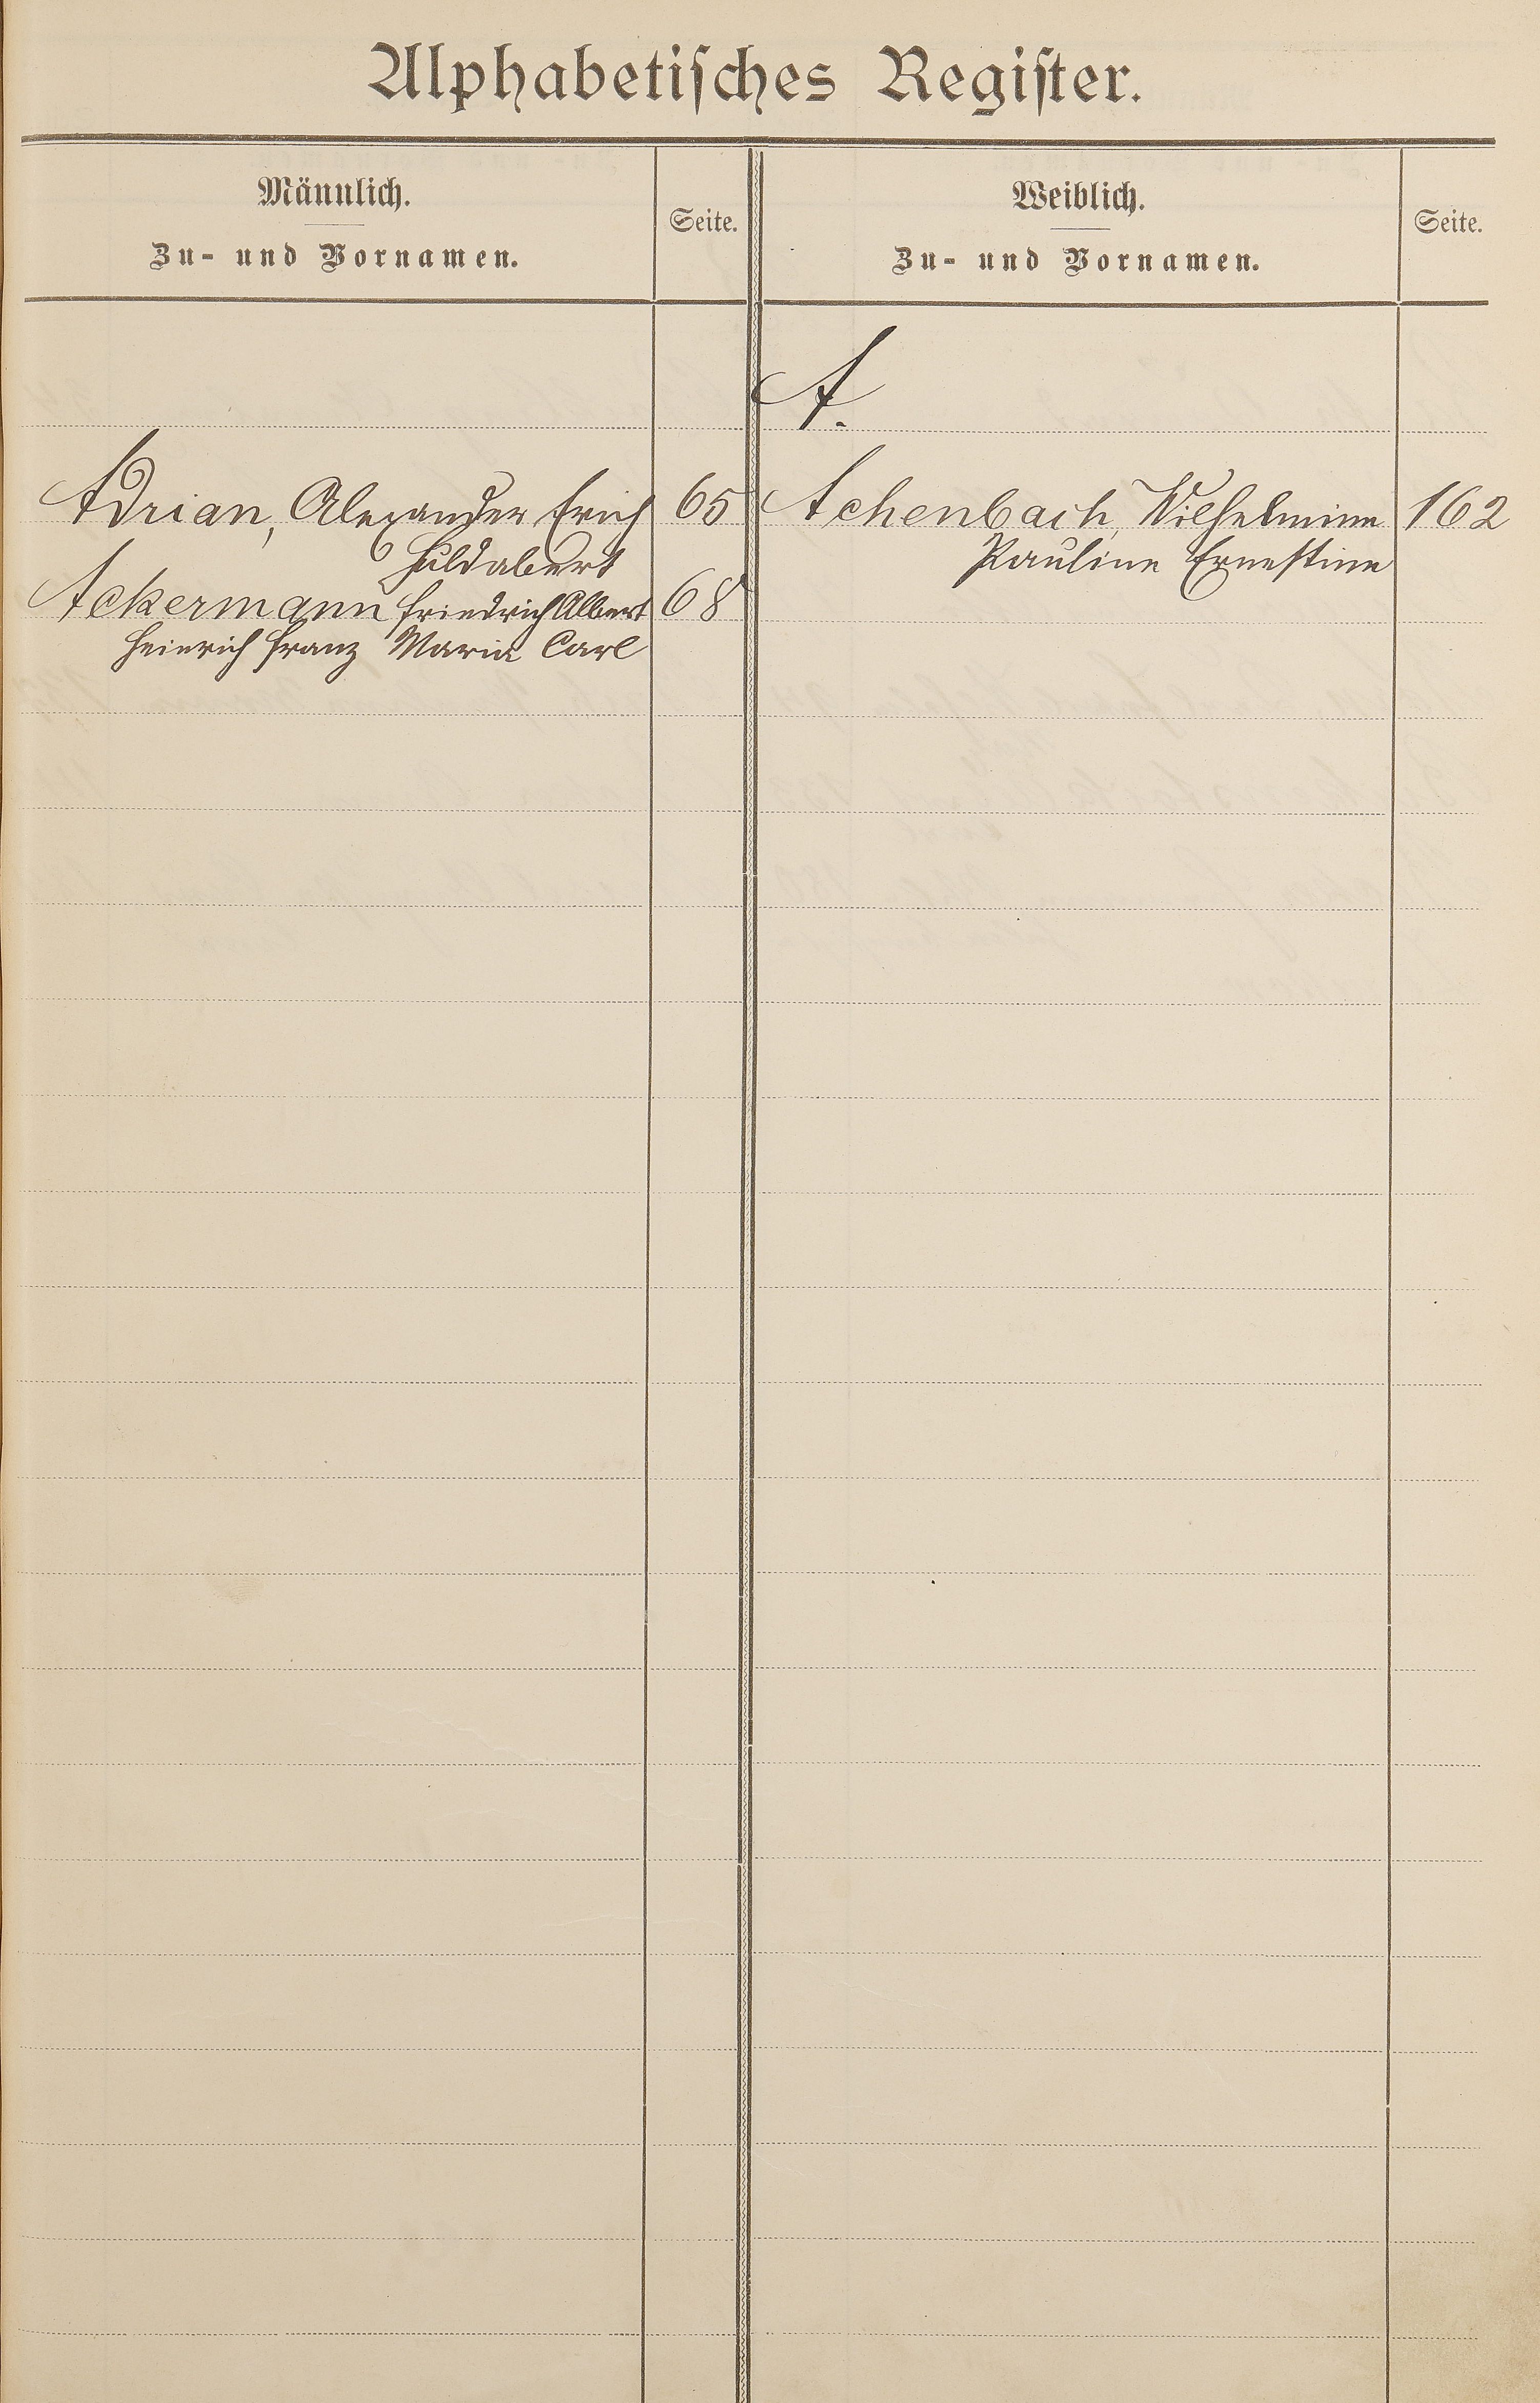 Alphabetisches Register.
Männlich.
Zu- und Vornamen.
Seite.
Weiblich.
Zu- und Vornamen.
Seite.
A.
Adrian, Alexander Erich 65
Huldabert
Ackermann Friedrich Albert 68
Heinrich Franz Maria Carl
Achenbach, Wilhelmine 162
Pauline Ernestine